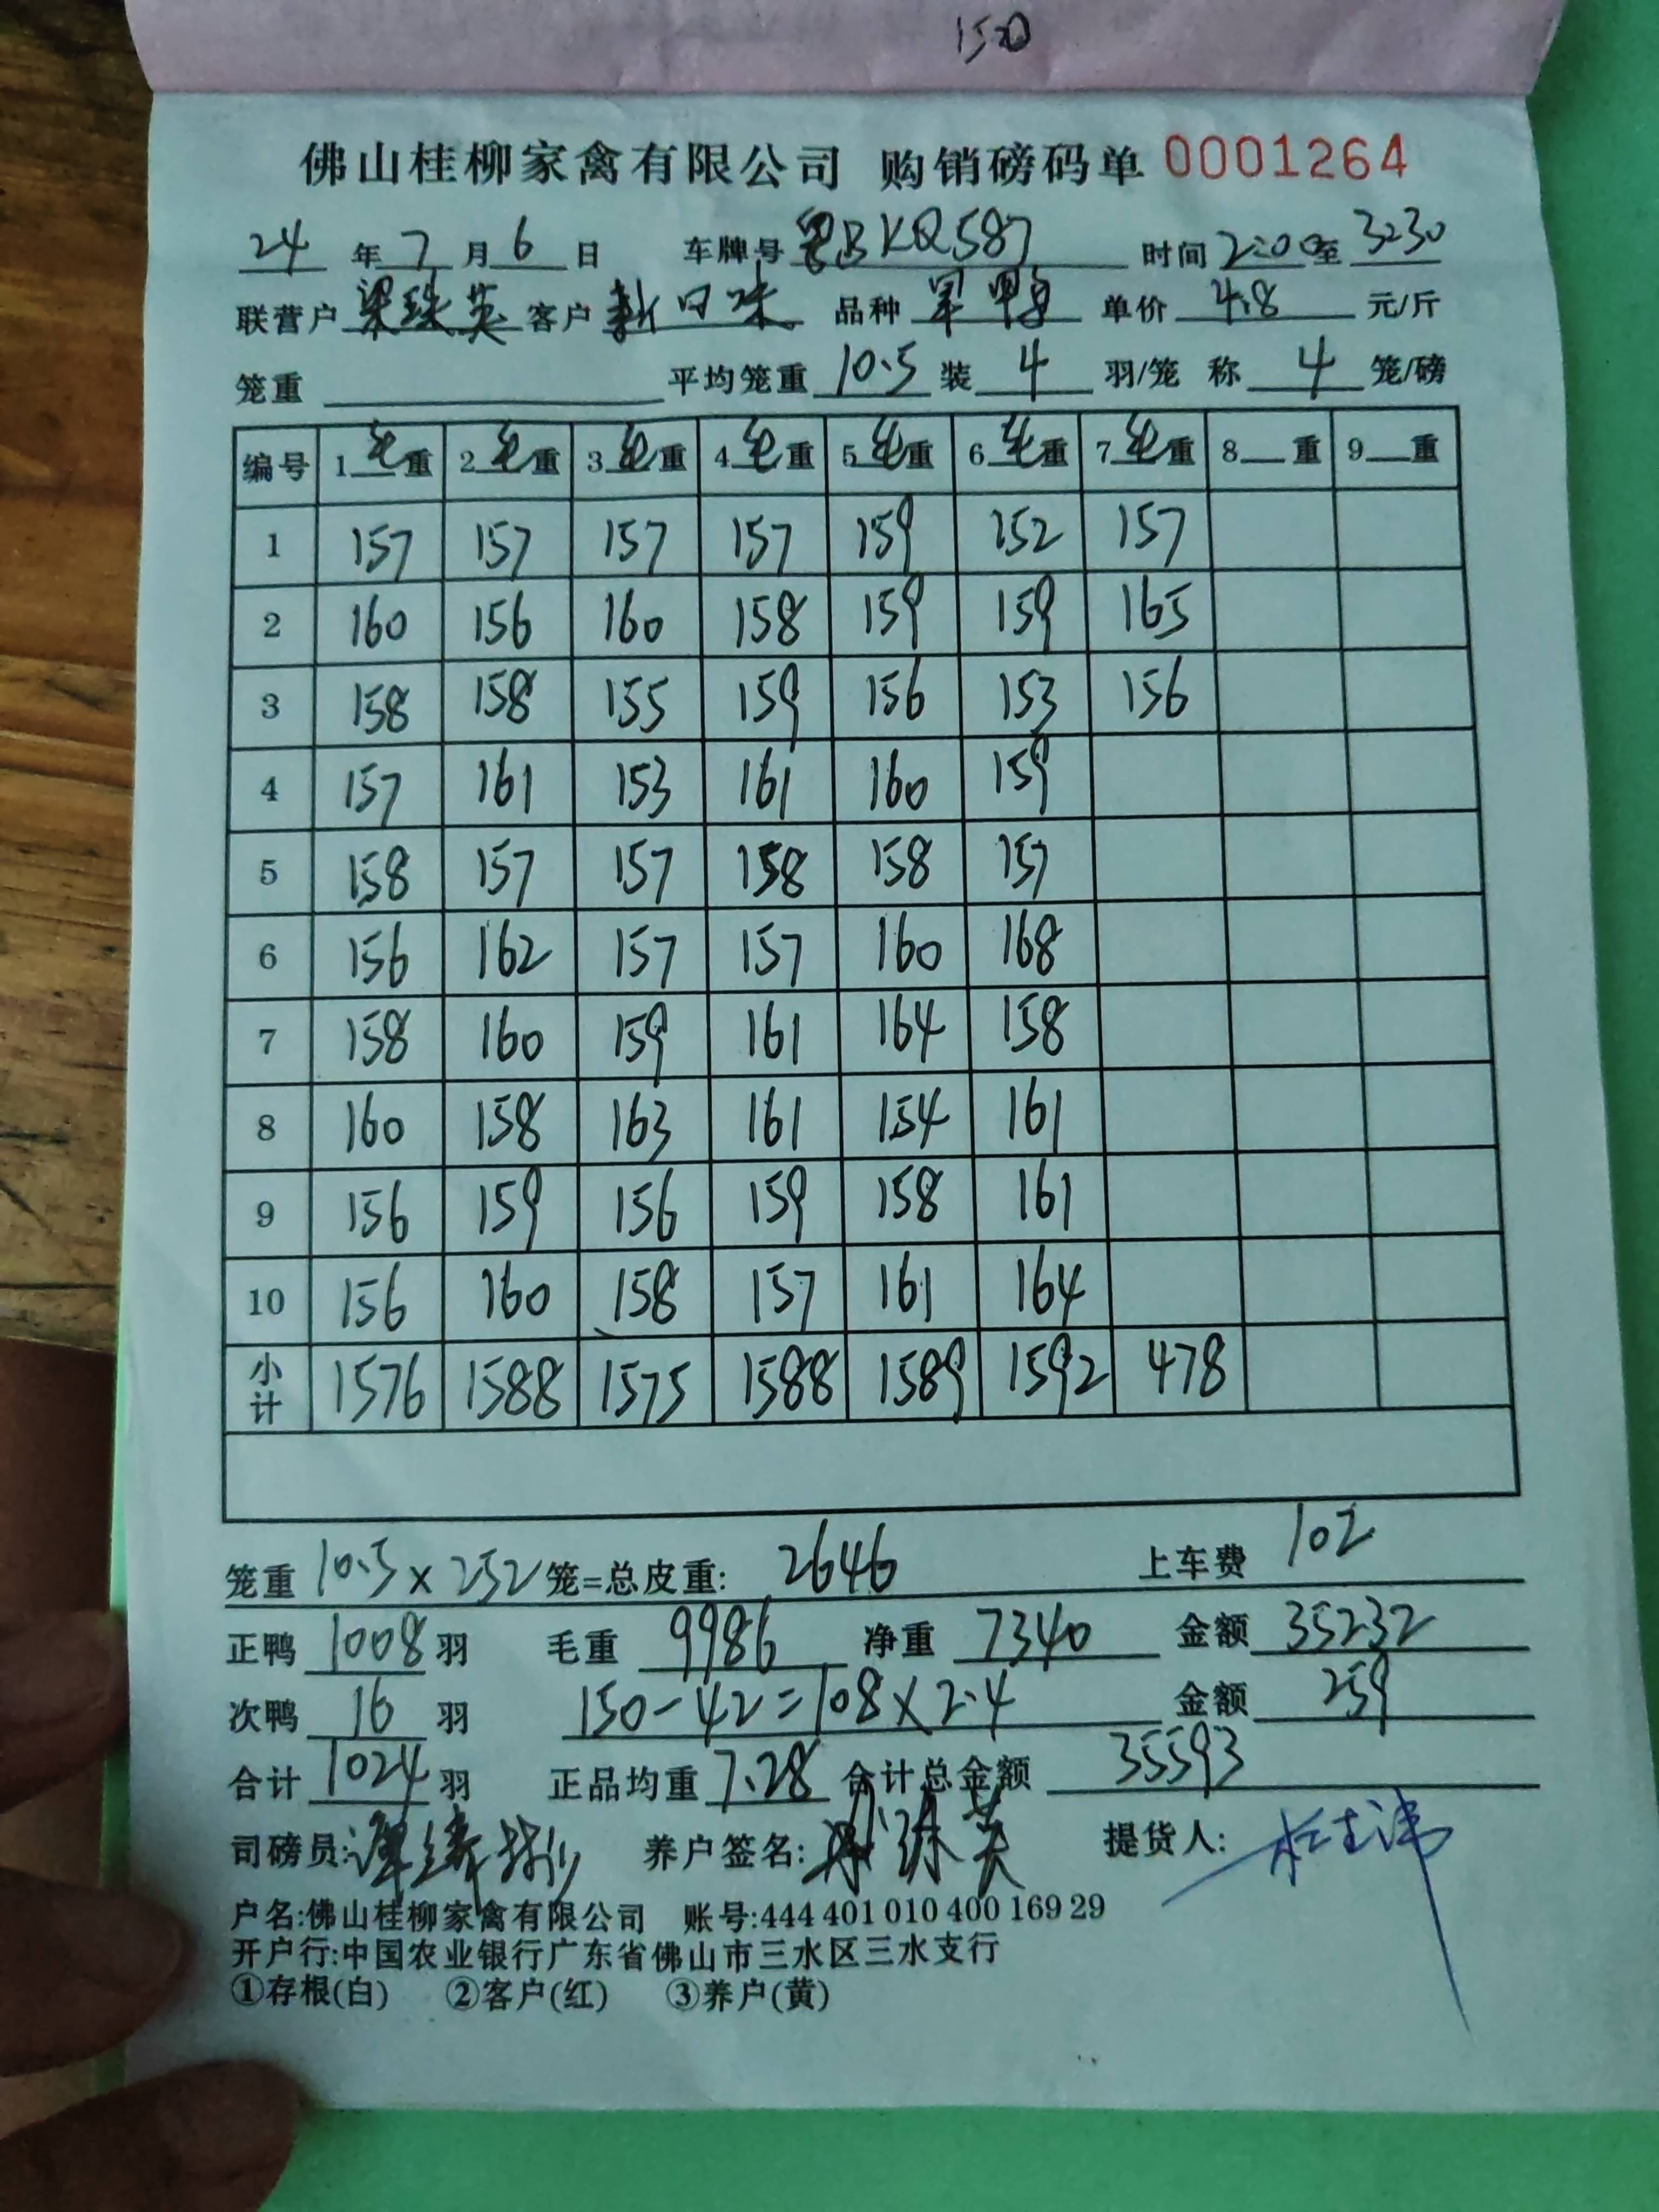 150
佛山桂柳家禽有限公司 购销磅码单 0001264
24 年 7 月 6 日 车牌号 粤BKQ587 时间 2:00 至 3:30
联营户 梁珠英 客户 新口味 品种 单价 4.8 元/斤
笼重 平均笼重 10.5 装 4 羽/笼 称 4 笼/磅
编号 1毛重 2毛重 3毛重 4毛重 5毛重 6毛重 7毛重 8 重 9 重
1 157 157 157 157 159 152 157
2 160 156 160 158 159 159 165
3 158 158 155 159 156 153 156
4 157 161 153 161 160 159
5 158 157 157 158 158 157
6 156 162 157 157 160 168
7 158 160 159 161 164 158
8 160 158 163 161 154 161
9 156 159 156 159 158 161
10 156 160 158 157 161 164
小计 1576 1588 1575 1588 1589 1592 478
笼重 10.5 × 252 笼=总皮重: 2646 上车费 102
正鸭 1008 羽 毛重 9986 净重 7340 金额 35232
次鸭 16 羽 150-42=108×2.4 金额 259
合计 1024 羽 正品均重 7.28 合计总金额 35593
司磅员: 养户签名: 提货人:
户名:佛山桂柳家禽有限公司 账号:444 401 010 400 169 29
开户行:中国农业银行广东省佛山市三水区三水支行
①存根(白) ②客户(红) ③养户(黄)